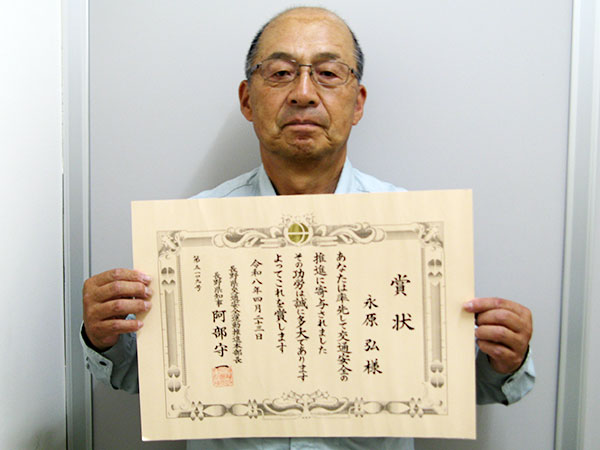 賞状
永原 弘 様
あなたは率先して交通安全の
推進に寄与されました
その功労は誠に多大であります
よってこれを賞します
令和八年四月二十三日
長野県交通安全運動推進本部長
長野県知事 阿部守一